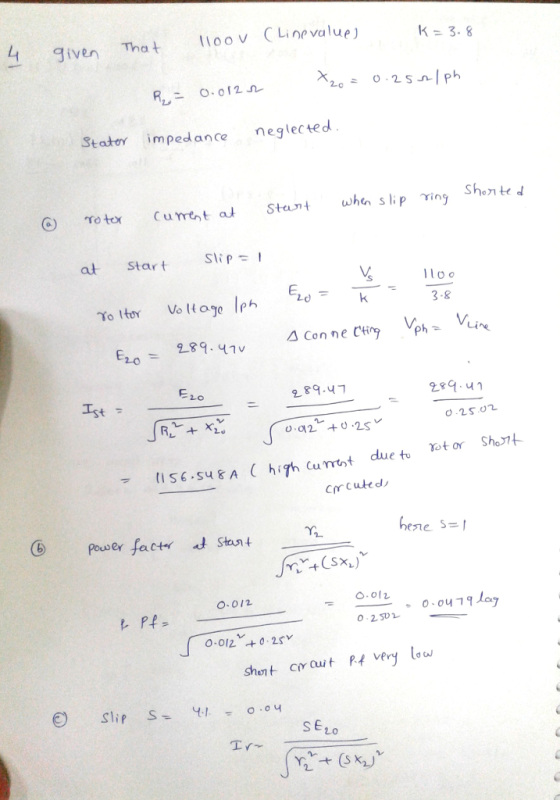 4 given That 1100V (Linevalue) K = 3.8
R₂ = 0.012 Ω X₂₀ = 0.25 Ω/ph
Stator impedance neglected.
ⓐ rotor current at start when slip ring shorted
at start slip = 1
roltor voltage /ph E₂₀ = Vs/K = 1100/3.8
E₂₀ = 289.47V Δ connecting Vph = VLine
Ist = E₂₀/√(R₂² + X₂₀²) = 289.47/√(0.012² + 0.25²) = 289.47/0.2502
= 1156.548A (high current due to rotor short
circuted)
ⓑ power factor at start r₂/√(r₂² + (SX₂)²) here S=1
Pf = 0.012/√(0.012² + 0.25²) = 0.012/0.2502 = 0.0479 lag
short circuit P.f very low
ⓒ slip S = 4% = 0.04
Ir = SE₂₀/√(r₂² + (SX₂)²)